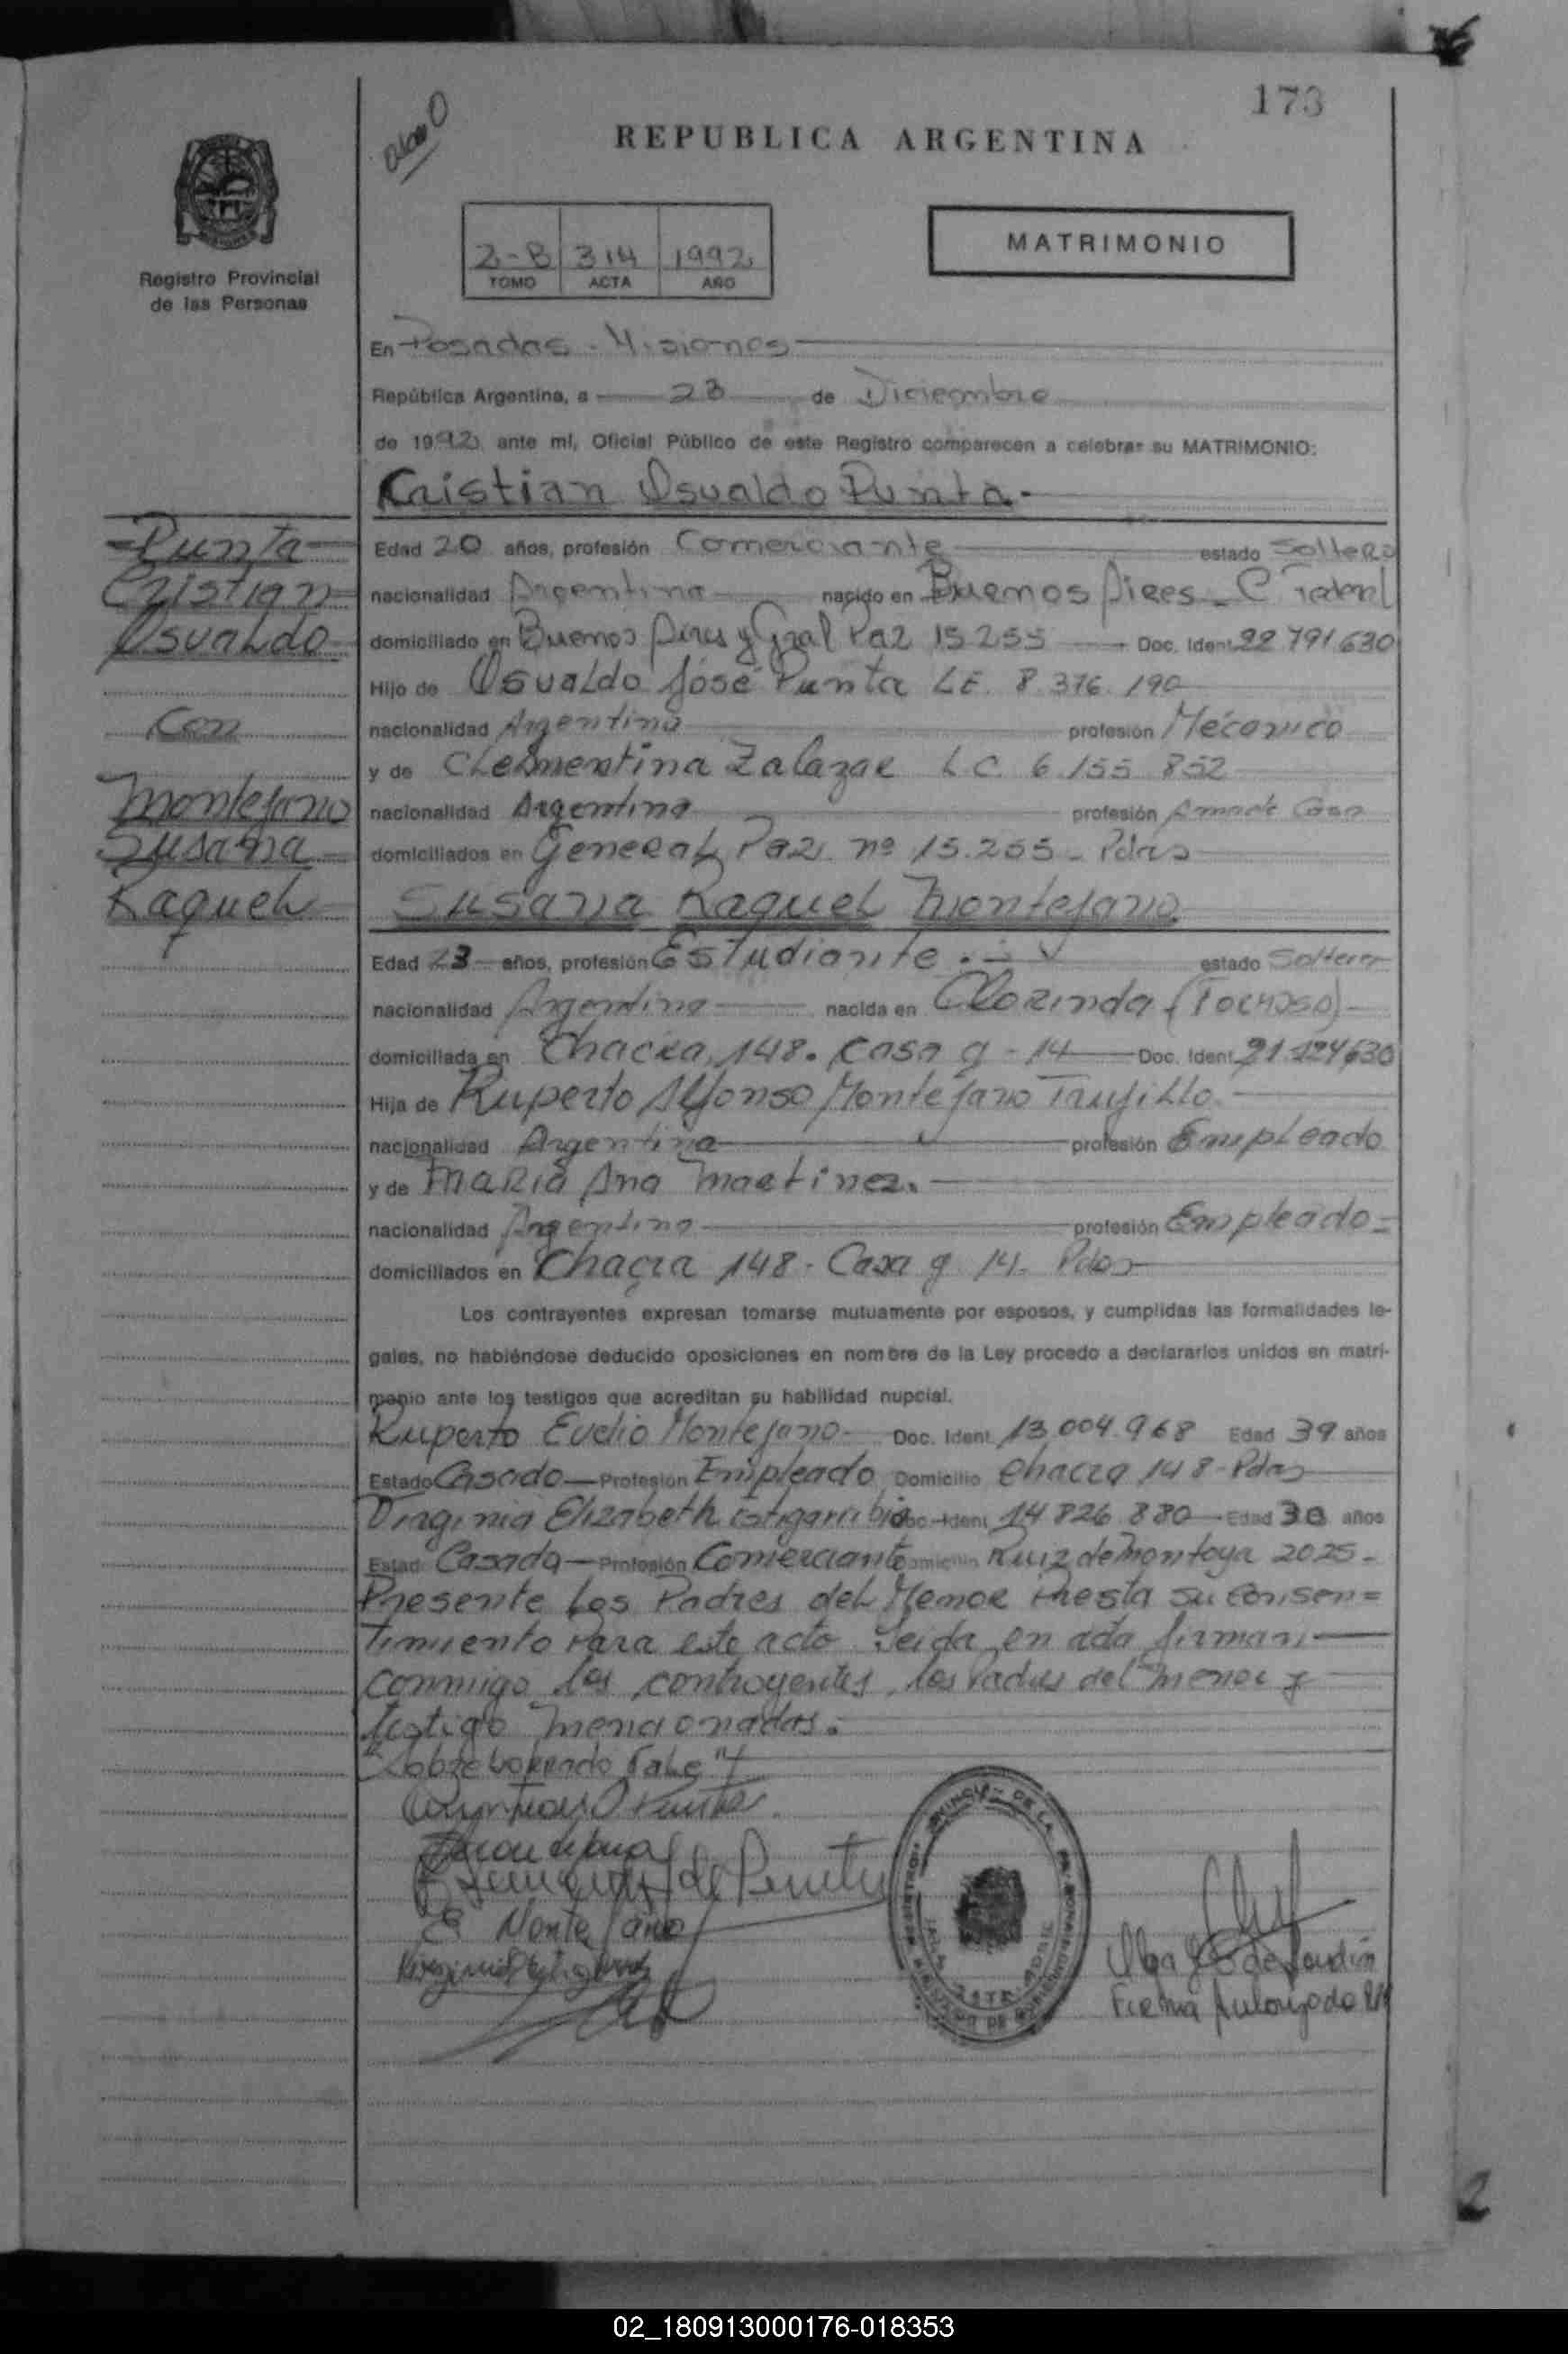 173
REPUBLICA ARGENTINA
Registro Provincial
de las Personas
2-B 314 1992
TOMO ACTA AÑO
MATRIMONIO
En Posadas - Misiones
República Argentina, a 23 de Diciembre
de 1992 ante mí, Oficial Público de este Registro comparecen a celebrar su MATRIMONIO:
Cristian Osvaldo Punta.-
Punta
Cristian
Osvaldo
Con
Montejano
Susana
Raquel
Edad 20 años, profesión Comerciante estado Soltero
nacionalidad Argentina nacido en Buenos Aires - C Federal
domiciliado en Buenos Aires y Gral Paz 15255 Doc. Ident 22.791.630
Hijo de Osvaldo José Punta LE. 8.376.190
nacionalidad Argentina profesión Mécanico
y de Clementina Zalazar L.C 6.155 852
nacionalidad Argentina profesión Ama de Casa
domiciliados en General Paz nº 15.255 - Pdas
Susana Raquel Montejano.
Edad 23 años, profesión Estudiante . - estado Soltera
nacionalidad Argentina nacida en Clorinda (Formosa)
domiciliada en Chacra 148. Casa g - 14 Doc. Ident 21.124630
Hija de Ruperto Alfonso Montejano Trujillo.
nacionalidad Argentina profesión Empleado
y de Maria Ana Martinez.
nacionalidad Argentina profesión Empleado -
domiciliados en Chacra 148 - Casa g 14 - Pdas
Los contrayentes expresan tomarse mutuamente por esposos, y cumplidas las formalidades le-
gales, no habiéndose deducido oposiciones en nombre de la Ley procedo a declararlos unidos en matri-
monio ante los testigos que acreditan su habilidad nupcial.
Ruperto Evelio Montejano Doc. Ident 13.004.968 Edad 39 años
Estado Casado Profesión Empleado Domicilio Chacra 148 - Pdas
Virginia Elizabeth Estigarribia Doc. Ident 14 826 880 Edad 30 años
Estado Casada Profesión Comerciante Domicilio Ruiz de Montoya 2025 -
Presente los Padres del Menor Presta su Consen=
timiento Para este acto. Leida en acta firman
conmigo los contrayentes, los Padres del menor y
testigo mencionados.
"Sobre borrado Vale"
O Punta
de Punta
E Montejano
Olga de
Firma Autorizada
02_180913000176-018353